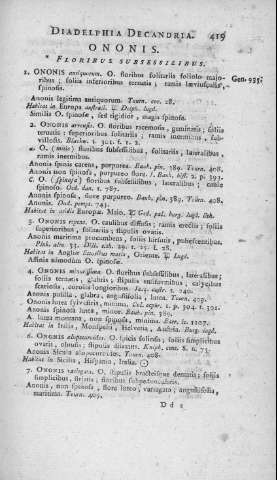 DIADELPHIA DECANDRIA. 419
ONONIS.
* FLORIBUS SUBSESSILIBUS.
1. ONONIS antiquorum. O. floribus solitariis foliolo majoribus; foliis inferioribus ternatis; ramis læviusculis, Gen. 935.
spinosis.
Anonis legitima antiquorum. Tourn. cor. 28.
Habitat in Europa australi.
Similis O. spinosæ, sed rigidior, magis spinosa.
2. ONONIS arvensis. O. floribus racemosis, geminatis; foliis
ternatis: superioribus solitariis; ramis inermibus, subvillosis.
O. (mitis) floribus subsessilibus, solitariis, lateralibus,
ramis inermibus.
Anonis spinis carens, purpurea. Bauh. pin. 389. Tourn. 408.
Anonis non spinosa, purpureo flore. J. Bauh. hist. 2. p. 393.
O. (spinosa) floribus subsessilibus, lateralibus; caule
spinoso. Oed. dan. t. 787.
Anonis spinosa, flore purpureo. Bauh. pin. 389. Tourn. 408.
Anonis. Dod. pempt. 743.
Habitat in aridis Europæ. Maio.
3. ONONIS repens. O. caulibus diffusis; ramis erectis; foliis
superioribus, solitariis; stipulis ovatis.
Anonis maritima procumbens, foliis hirsutis, pubescentibus.
Habitat in Angliæ littoribus maris, Oriente.
Affinis admodum O. spinosæ.
4. ONONIS minutissima. O. floribus subsessilibus, lateralibus;
foliis ternatis, glabris; stipulis ensiformibus; calycibus
scariosis, corolla longioribus. Jacq. austr. t. 240.
Anonis pusilla, glabra, angustifolia, lutea. Tourn. 409.
Anonis spinosa lutea, minor. Bauh. pin. 389.
A. lutea montana, non spinosa, minima. Barr. ic. 1107.
Habitat in Italia, Monspelii, Helvetia, Austria.
6. ONONIS alopecuroides. O. spicis foliosis; foliis simplicibus
ovatis, obtusis; stipulis dilatatis. Kniph. cent. 8. n. 73.
Anonis Sicula alopecuroides. Tourn. 408.
Habitat in Sicilia, Hispania, Italia. ☉
7. ONONIS variegata. O. stipulis bracteisque dentatis; foliis
simplicibus,
Anonis, non spinosa, flore luteo, variegato; angustifolia,
maritima. Tourn. 409.
D d 2